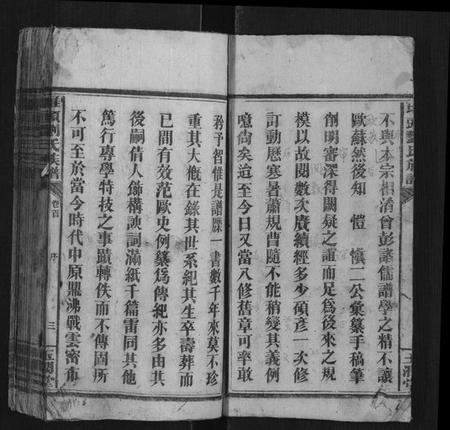 不與本宗相淆曾彭諸儒譜學之精不讓
歐蘇然後知 愷 愼二公彙纂手稿筆
削明審深得闕疑之誼而足為後來之規
模以故閱數次賡續經多少碩彥一次修
訂動歷寒暑蕭規曹隨不能稍變其義例
噫尚矣迨至今日又當八修舊章可率敢
矜予智惟是譜牒一書數千年來莫不珍
重其大槪在錄其世系紀其生卒壽葬而
已間有效范歐史例纂為傳紀亦多由其
後嗣倩人飾構諛詞滿紙千篇雷同其他
篤行專學特技之事蹟轉佚而不傳固所
不可至於當今時代中原鼎沸戰雲密布
劉氏族譜
卷首
序
三